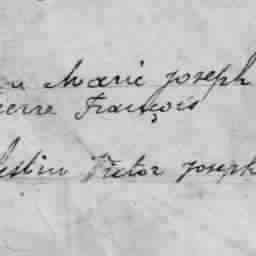 Marie Joseph
ierre François
lestin Victor Joseph